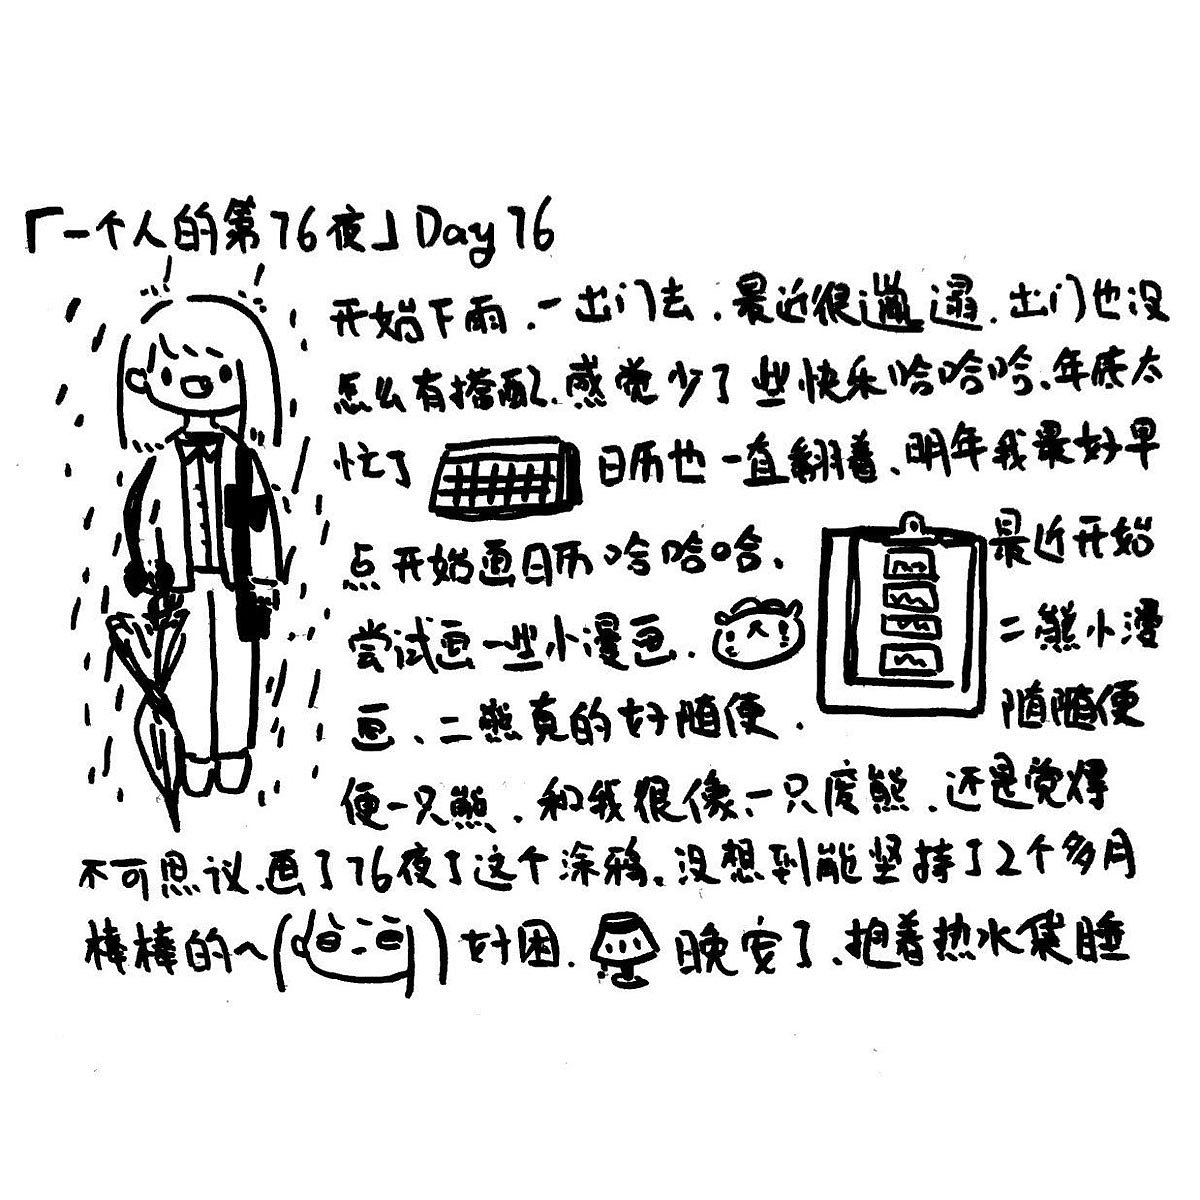 「一个人的第76夜」Day 76
开始下雨.一出门去.最近很邋遢.出门也没
怎么有搭配.感觉少了些快乐哈哈哈.年底太
忙了 日历也一直翻着、明年我最好早
点开始画日历哈哈哈、 最近开始
尝试画一些小漫画. 二熊小漫
画、二熊真的好随便. 随随便
便一只熊.和我很像、一只废熊.还是觉得
不可思议.画了76夜了这个涂鸦.没想到能坚持了2个多月
棒棒的~( )好困. 晚安了、抱着热水袋睡